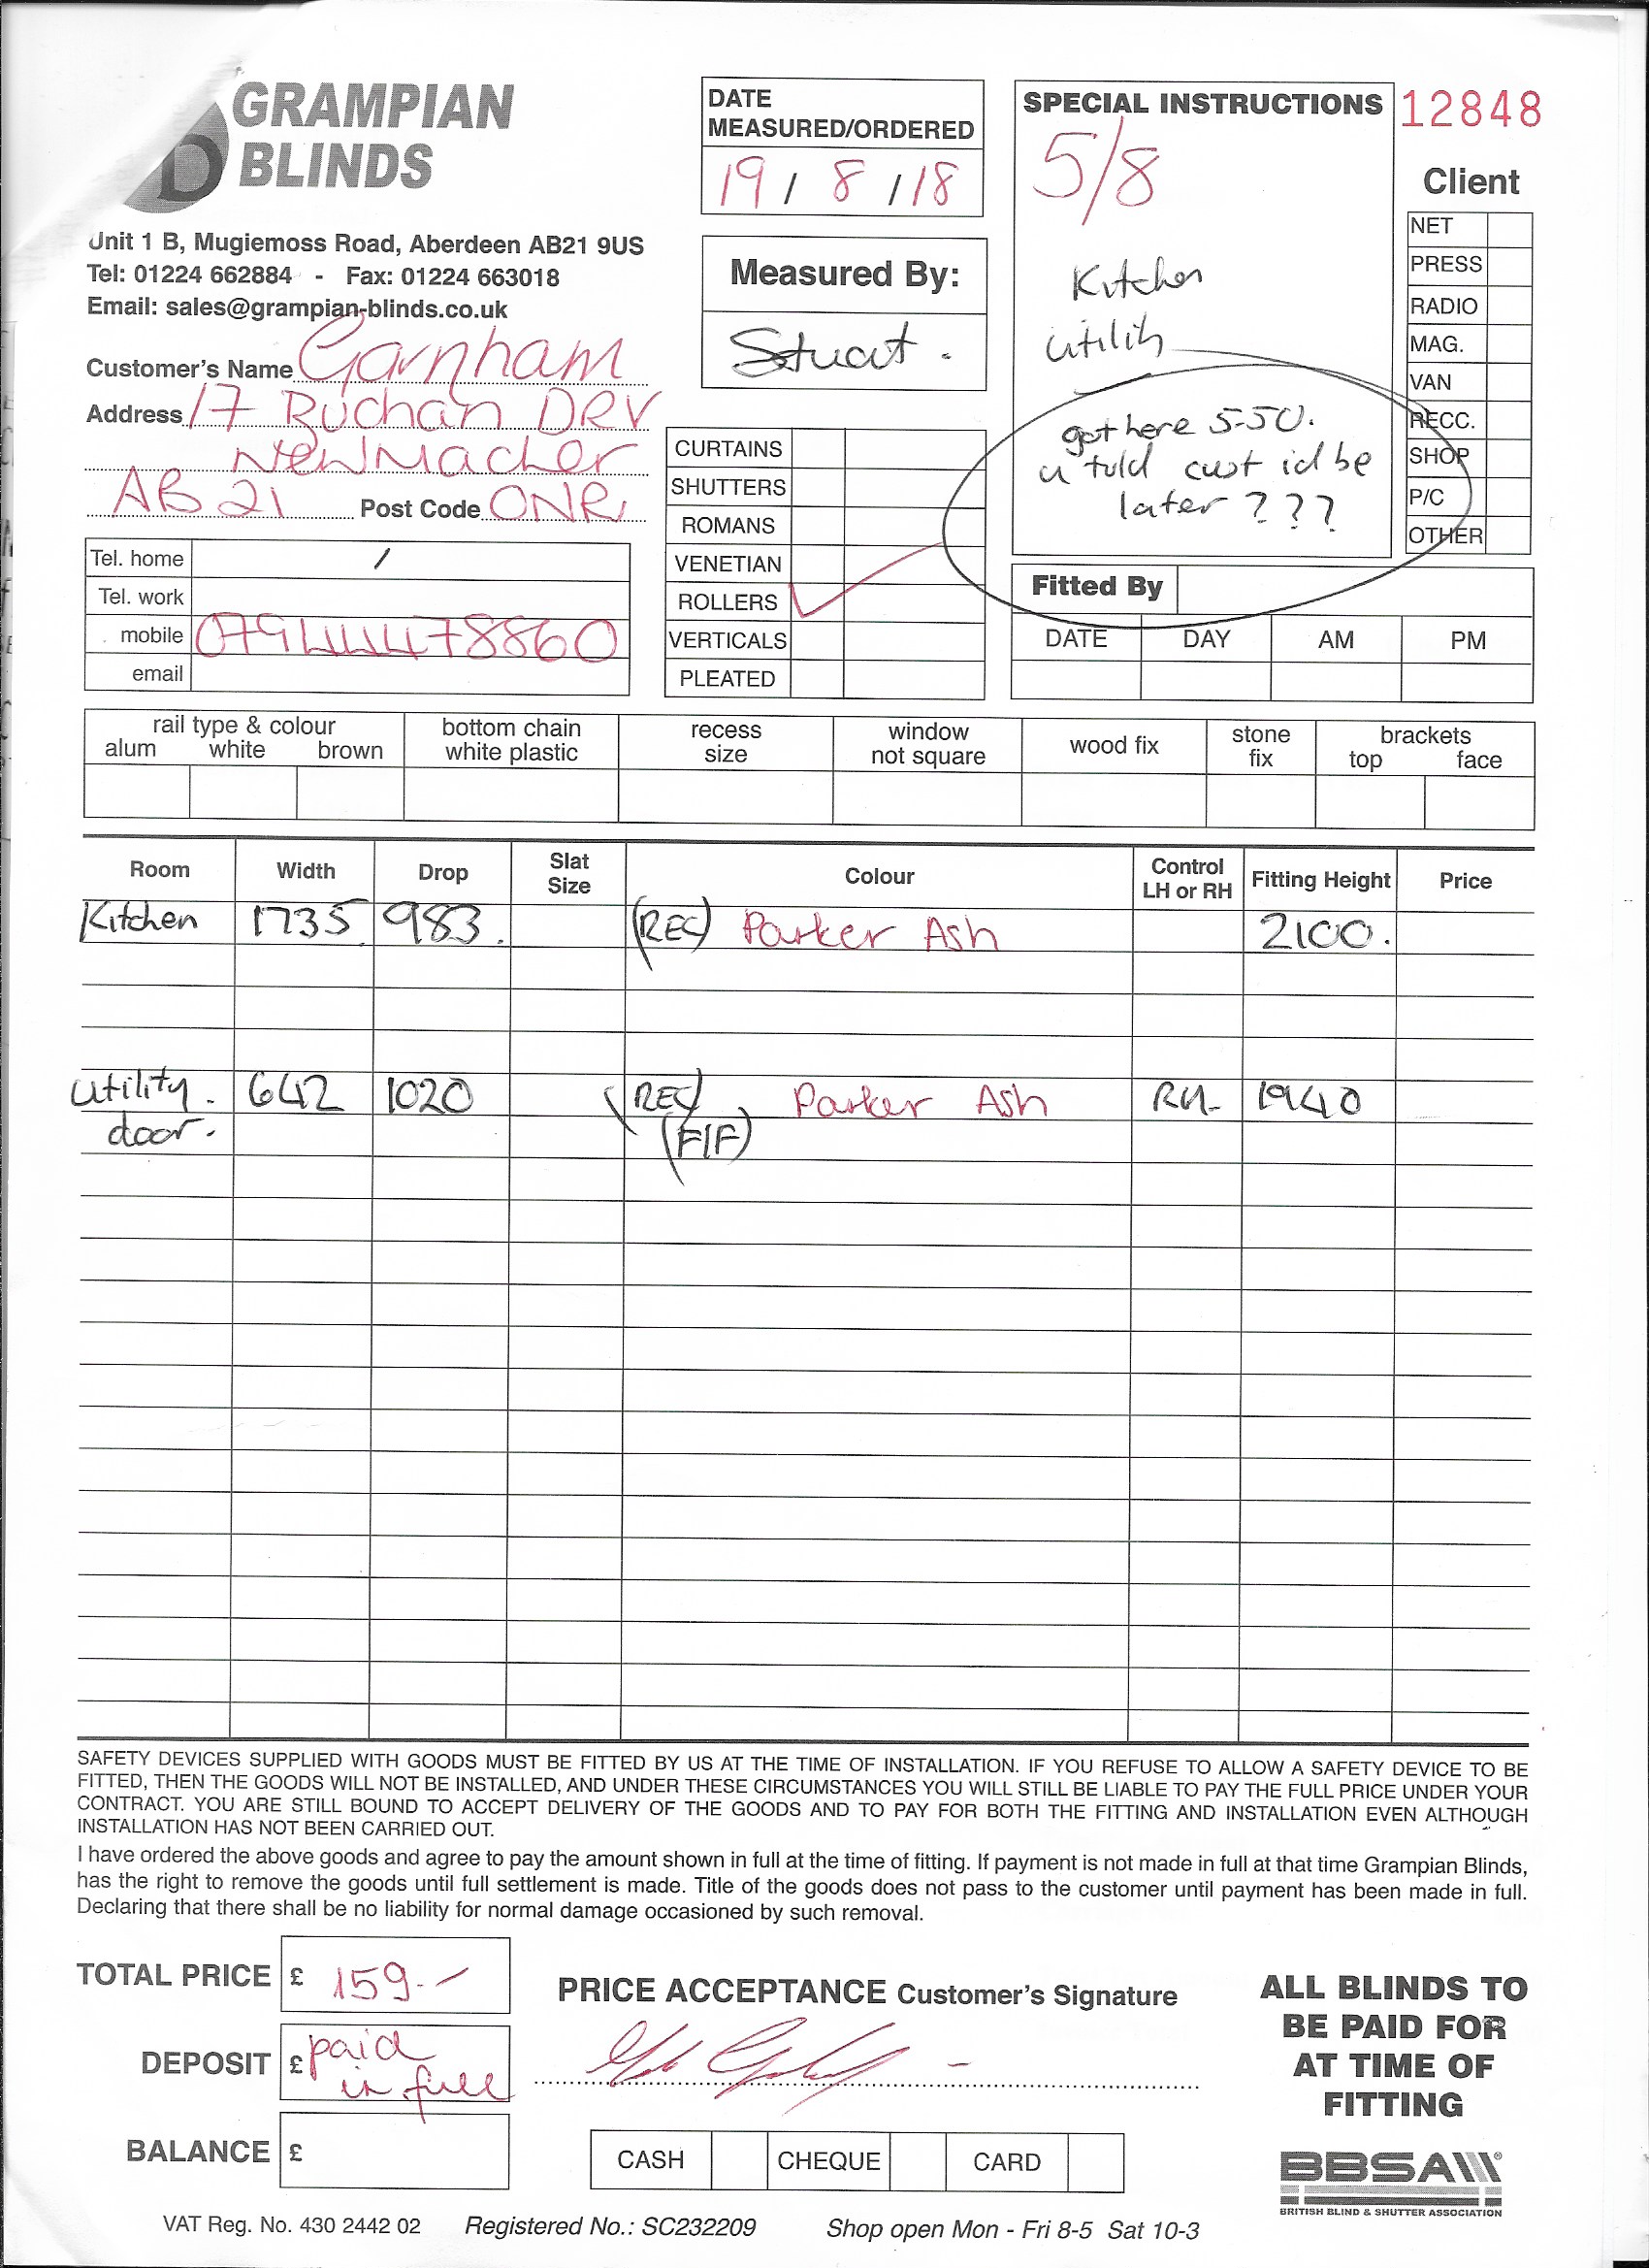 GRAMPIAN
BLINDS
Unit 1 B, Mugiemoss Road, Aberdeen AB21 9US
Tel: 01224 662884 - Fax: 01224 663018
Email: sales@grampian-blinds.co.uk
Customer's Name Garnham
Address 17 Buchan DRV
Newmacher
AB 21 Post Code ONR
Tel. home /
Tel. work
mobile 07944478860
email
DATE
MEASURED/ORDERED
19 / 8 / 18
Measured By:
Stuart.
CURTAINS
SHUTTERS
ROMANS
VENETIAN
ROLLERS ✓
VERTICALS
PLEATED
SPECIAL INSTRUCTIONS
5/8
Kitchen
utility
got here 5-50.
u told cust id be
later ???
12848
Client
NET
PRESS
RADIO
MAG.
VAN
RECC.
SHOP
P/C
OTHER
Fitted By
DATE DAY AM PM
rail type & colour
alum white brown
bottom chain
white plastic
recess
size
window
not square
wood fix
stone
fix
brackets
top face
Room Width Drop Slat Size Colour Control LH or RH Fitting Height Price
Kitchen 1735 983. (REC) Parker Ash 2100.
utility. 642 1020 (REC) Parker Ash RH- 1940
door. (FIF)
SAFETY DEVICES SUPPLIED WITH GOODS MUST BE FITTED BY US AT THE TIME OF INSTALLATION. IF YOU REFUSE TO ALLOW A SAFETY DEVICE TO BE
FITTED, THEN THE GOODS WILL NOT BE INSTALLED, AND UNDER THESE CIRCUMSTANCES YOU WILL STILL BE LIABLE TO PAY THE FULL PRICE UNDER YOUR
CONTRACT. YOU ARE STILL BOUND TO ACCEPT DELIVERY OF THE GOODS AND TO PAY FOR BOTH THE FITTING AND INSTALLATION EVEN ALTHOUGH
INSTALLATION HAS NOT BEEN CARRIED OUT.
I have ordered the above goods and agree to pay the amount shown in full at the time of fitting. If payment is not made in full at that time Grampian Blinds,
has the right to remove the goods until full settlement is made. Title of the goods does not pass to the customer until payment has been made in full.
Declaring that there shall be no liability for normal damage occasioned by such removal.
TOTAL PRICE £ 159.-
DEPOSIT £ paid
in full
BALANCE £
PRICE ACCEPTANCE Customer's Signature
CASH CHEQUE CARD
ALL BLINDS TO
BE PAID FOR
AT TIME OF
FITTING
BBSA
BRITISH BLIND & SHUTTER ASSOCIATION
VAT Reg. No. 430 2442 02 Registered No.: SC232209 Shop open Mon - Fri 8-5 Sat 10-3